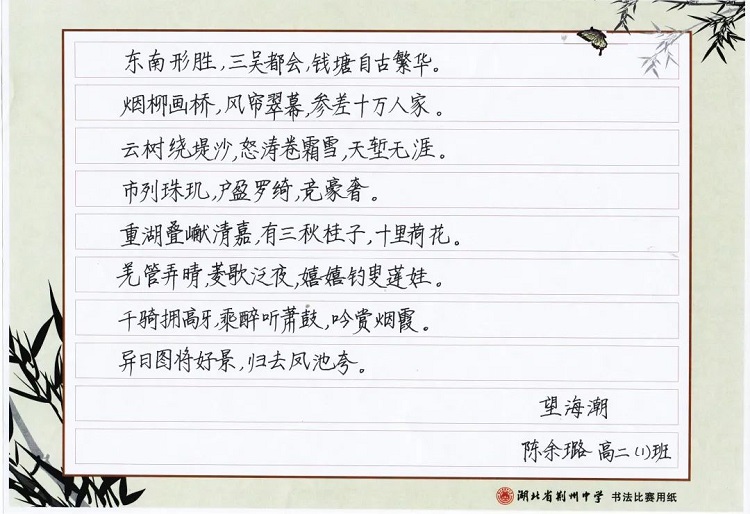 东南形胜，三吴都会，钱塘自古繁华。
烟柳画桥，风帘翠幕，参差十万人家。
云树绕堤沙，怒涛卷霜雪，天堑无涯。
市列珠玑，户盈罗绮，竞豪奢。
重湖叠巘清嘉，有三秋桂子，十里荷花。
羌管弄晴，菱歌泛夜，嬉嬉钓叟莲娃。
千骑拥高牙，乘醉听萧鼓，吟赏烟霞。
异日图将好景，归去凤池夸。
望海潮
陈余璐 高二（1）班
湖北省荆州中学 书法比赛用纸